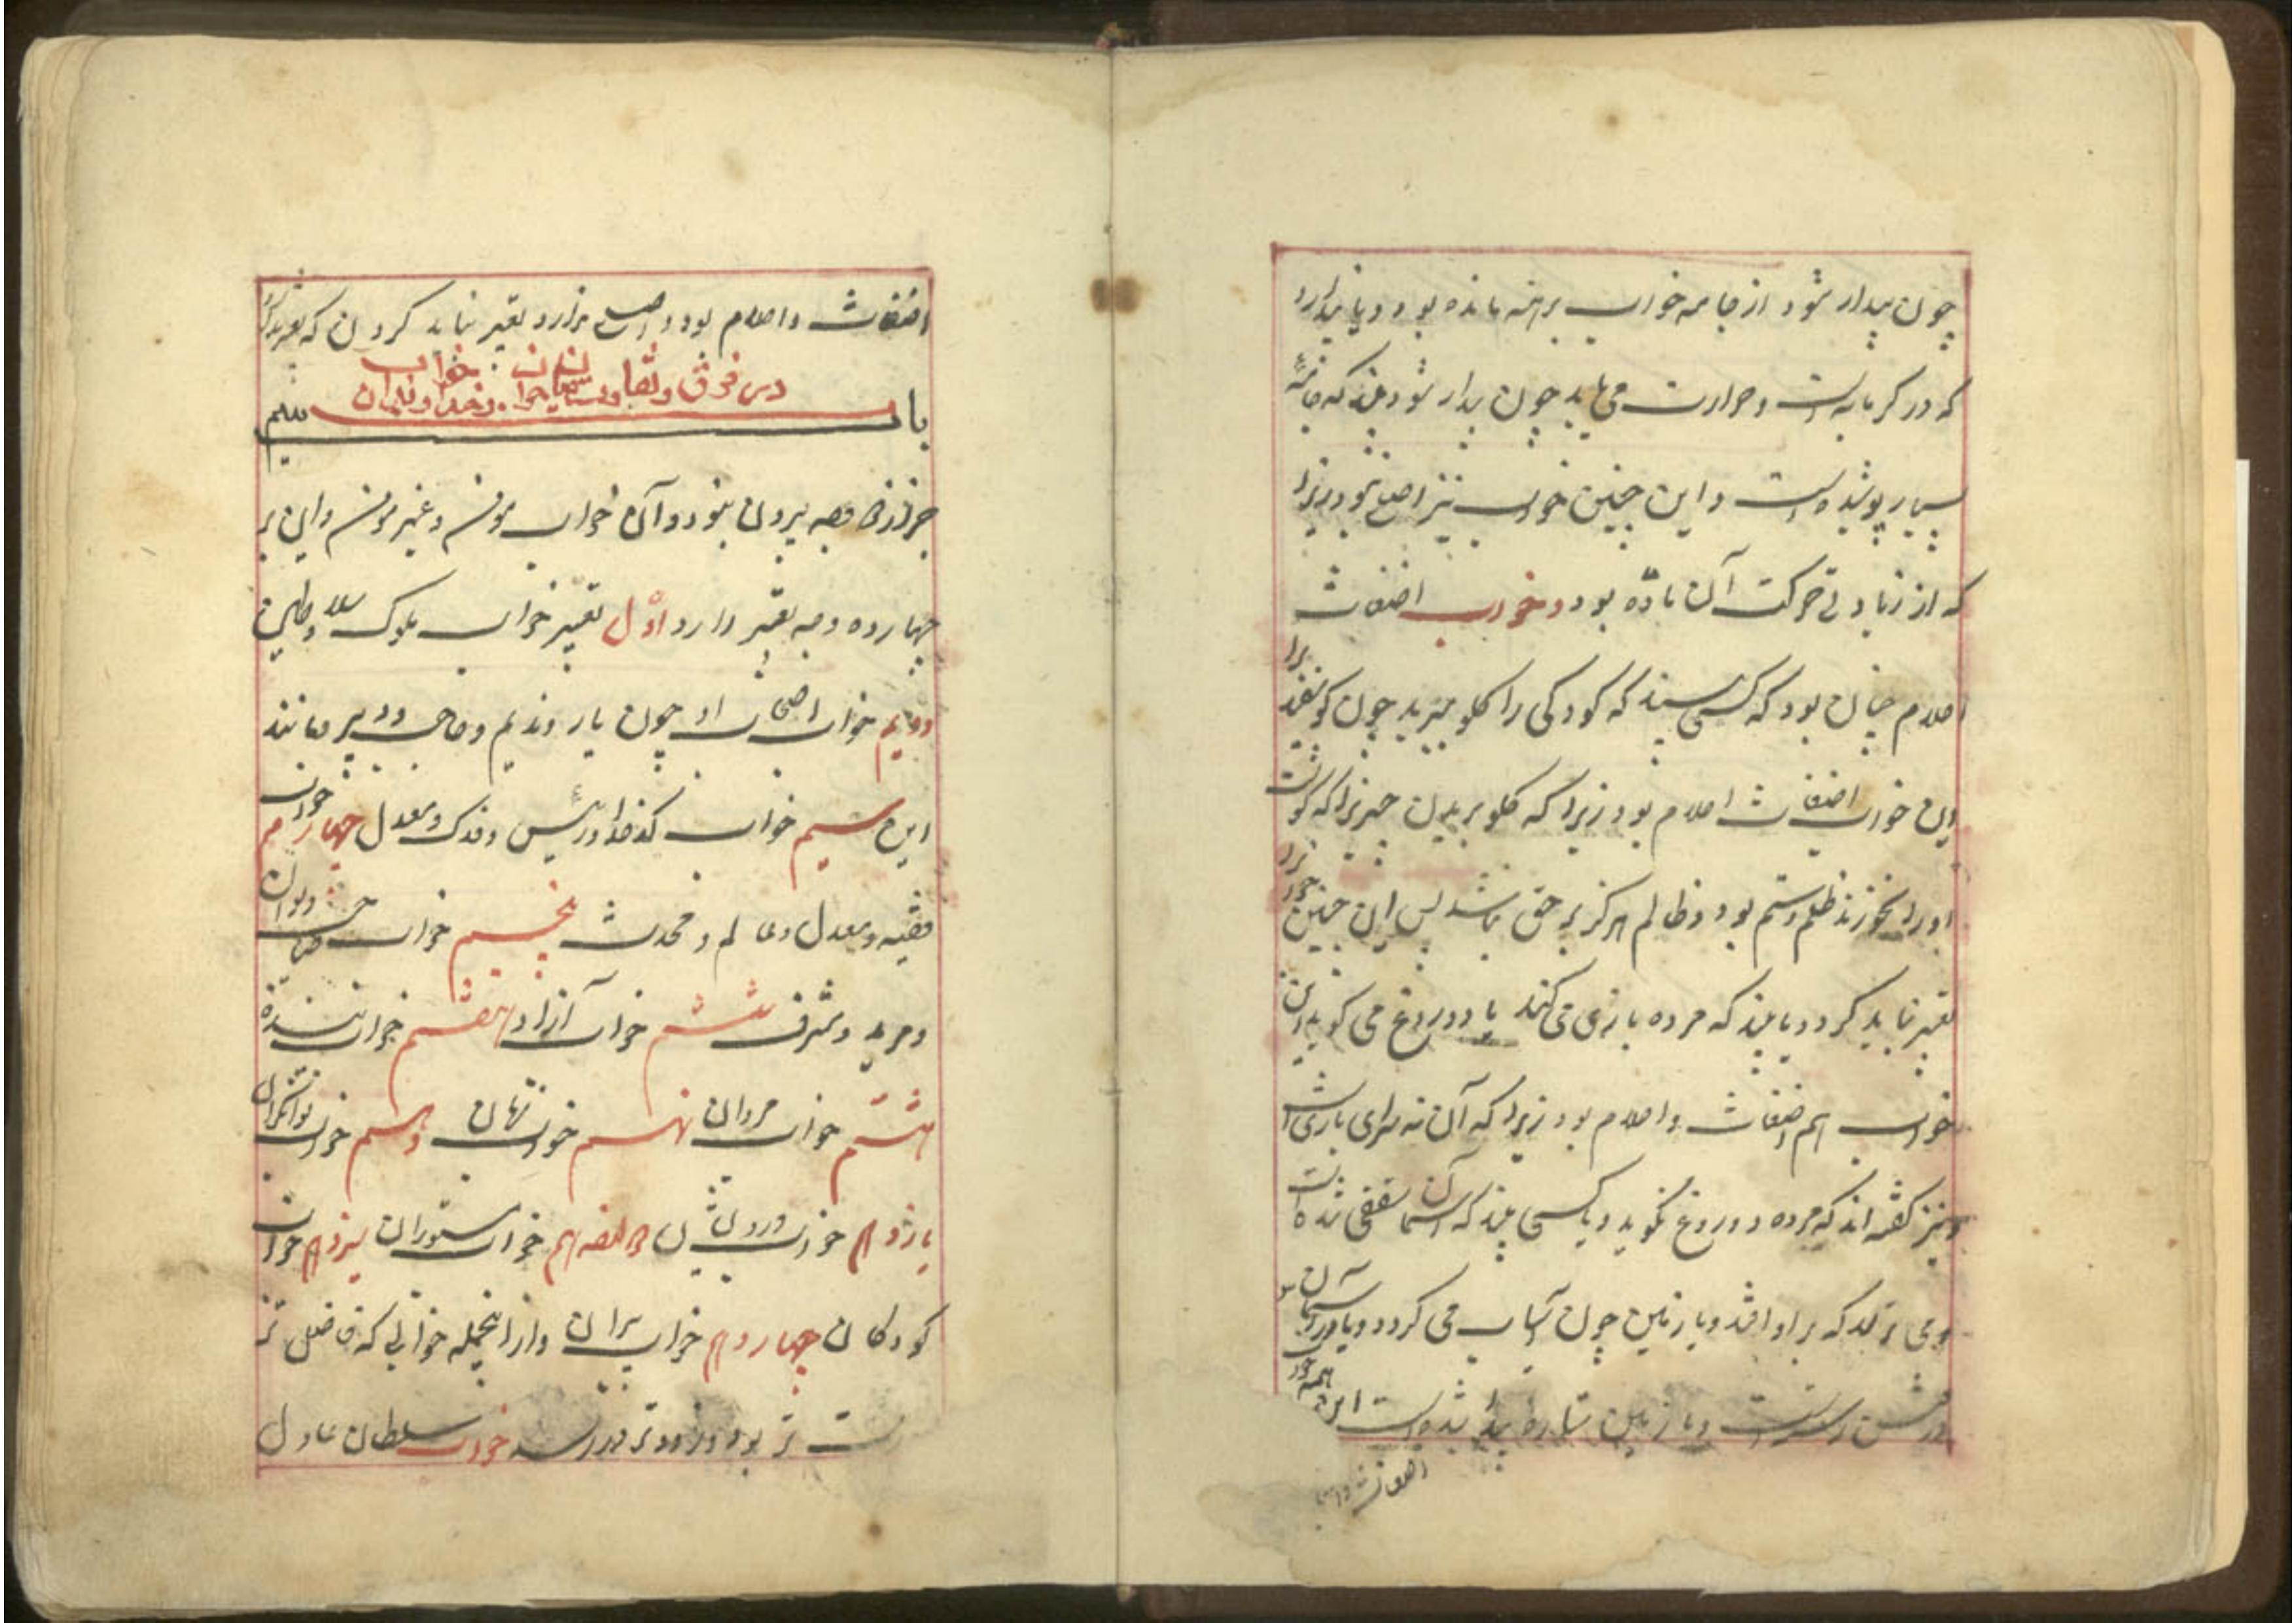 چون بیدار شود از جامه خواب برهنه مانده بود و یا پندارد
که در گرمابه است و حرارت می یابد چون بیدار شود بیند که جامه
بسیار پوشیده است و این چنین خواب نیز اصل نبود زیرا
که از زیادتی حرکت آن ماده بود و خواب اضغاث
احلام چنان بود که کسی بیند که کودکی را گلو میبرید چون گوسفند برا
این خواب اضغاث احلام بود زیرا که گلو بریدن چیزیرا که گوشت
او را نخورند ظلم و ستم بود و ظالم هرگز بر حق نباشد پس این چنین خواب را
تعبیر نباید کرد و یا بیند که مرده بازی می کند یا دروغ می گوید این
خواب هم اضغاث و احلام بود زیرا که آن نه سرای بازی است
و نیز گفته اند که مرده دروغ نگوید و یا کسی بیند که آسمان سقفی شده است
و می ترسد که بر او افتد و یا زمین چون آسیاب می گردد و یا در آسمان
درخت رسته است و یا زمین ستاره پیدا شده است این همه خواب
اضغاث و احلا
اضغاث و احلام بود و اصل ندارد تعبیر نباید کردن که
باب در فرق و تفاوت میان خواب خداوندان
جز از دو وجه بیرون نبود و آن خواب مومن و غیر مومن و این بر
چهارده وجه تعبیر دارد اوّل تعبیر خواب ملوک و سلاطین
دویم خواب اصحاب او چون یار و ندیم و حاجب و دبیر و مانند
این سیم خواب کدخدا و رئیس و معدل چهارم خواب
فقیه و معدل و عالم و محدث پنجم خواب
و مرید و مشرف ششم خواب آزاد هفتم خواب بنده
هشتم خواب مردان نهم خواب زنان دهم خواب توانگران
یازدهم خواب درویشان دوازدهم خواب مستوران سیزدهم خواب
کودکان چهاردهم خواب پیران و از اینجمله خوابی که فاضل تر
است تر بود و زودتر در رسد خواب سلطان عادل